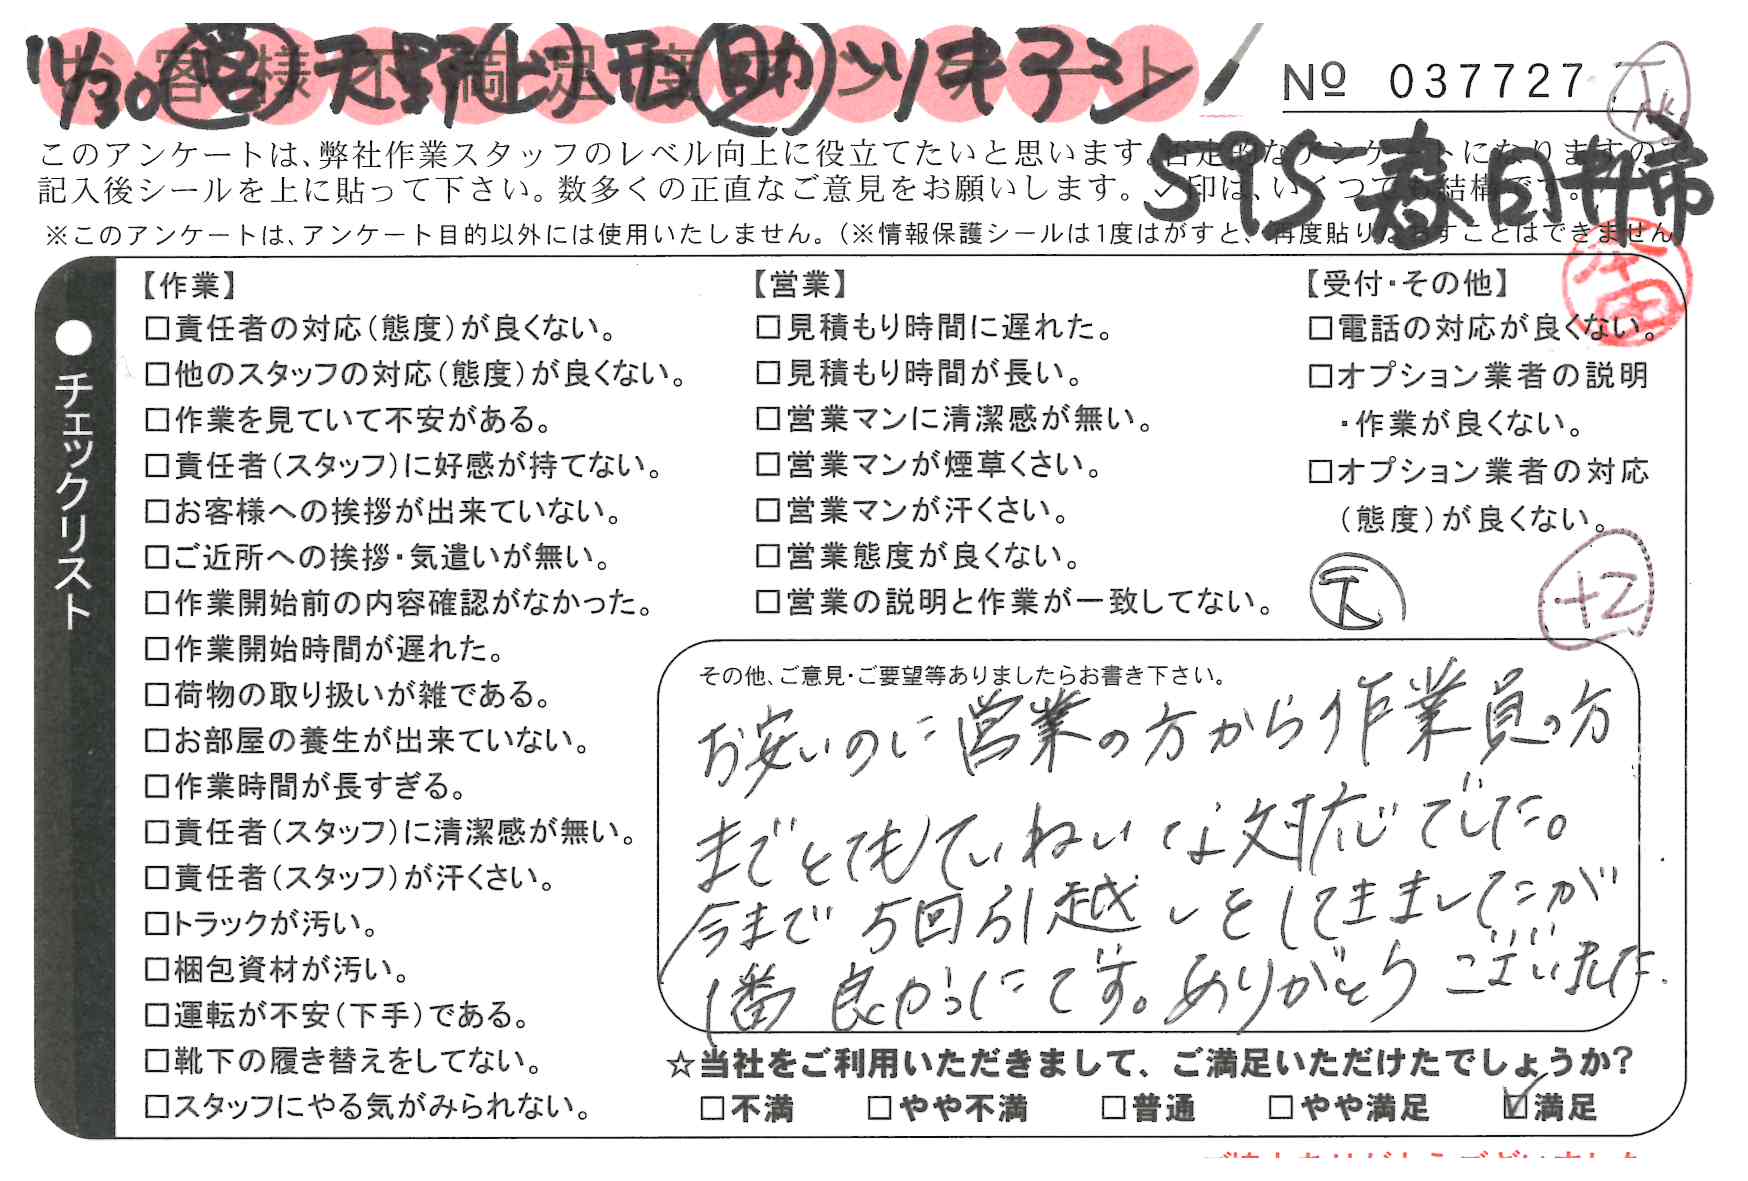 お客様不満足度アンケート
11/30 営 天野 上 八西 助
No 037727
595 春日井市
このアンケートは、弊社作業スタッフのレベル向上に役立てたいと思います。否定的なアンケートになりますの
記入後シールを上に貼って下さい。数多くの正直なご意見をお願いします。✓印は、いくつでも結構です。
※このアンケートは、アンケート目的以外には使用いたしません。(※情報保護シールは1度はがすと、再度貼りなおすことはできません
本田
●チェックリスト
【作業】
□責任者の対応(態度)が良くない。
□他のスタッフの対応(態度)が良くない。
□作業を見ていて不安がある。
□責任者(スタッフ)に好感が持てない。
□お客様への挨拶が出来ていない。
□ご近所への挨拶・気遣いが無い。
□作業開始前の内容確認がなかった。
□作業開始時間が遅れた。
□荷物の取り扱いが雑である。
□お部屋の養生が出来ていない。
□作業時間が長すぎる。
□責任者(スタッフ)に清潔感が無い。
□責任者(スタッフ)が汗くさい。
□トラックが汚い。
□梱包資材が汚い。
□運転が不安(下手)である。
□靴下の履き替えをしてない。
□スタッフにやる気がみられない。
【営業】
□見積もり時間に遅れた。
□見積もり時間が長い。
□営業マンに清潔感が無い。
□営業マンが煙草くさい。
□営業マンが汗くさい。
□営業態度が良くない。
□営業の説明と作業が一致してない。
【受付・その他】
□電話の対応が良くない。
□オプション業者の説明
・作業が良くない。
□オプション業者の対応
(態度)が良くない。
天
+2
その他、ご意見・ご要望等ありましたらお書き下さい。
お安いのに営業の方から作業員の方
までとてもていねいな対応でした。
今まで5回引越しをしてきましたが
1番良かったです。ありがとうございました.
☆当社をご利用いただきまして、ご満足いただけたでしょうか?
□不満 □やや不満 □普通 □やや満足 ☑満足